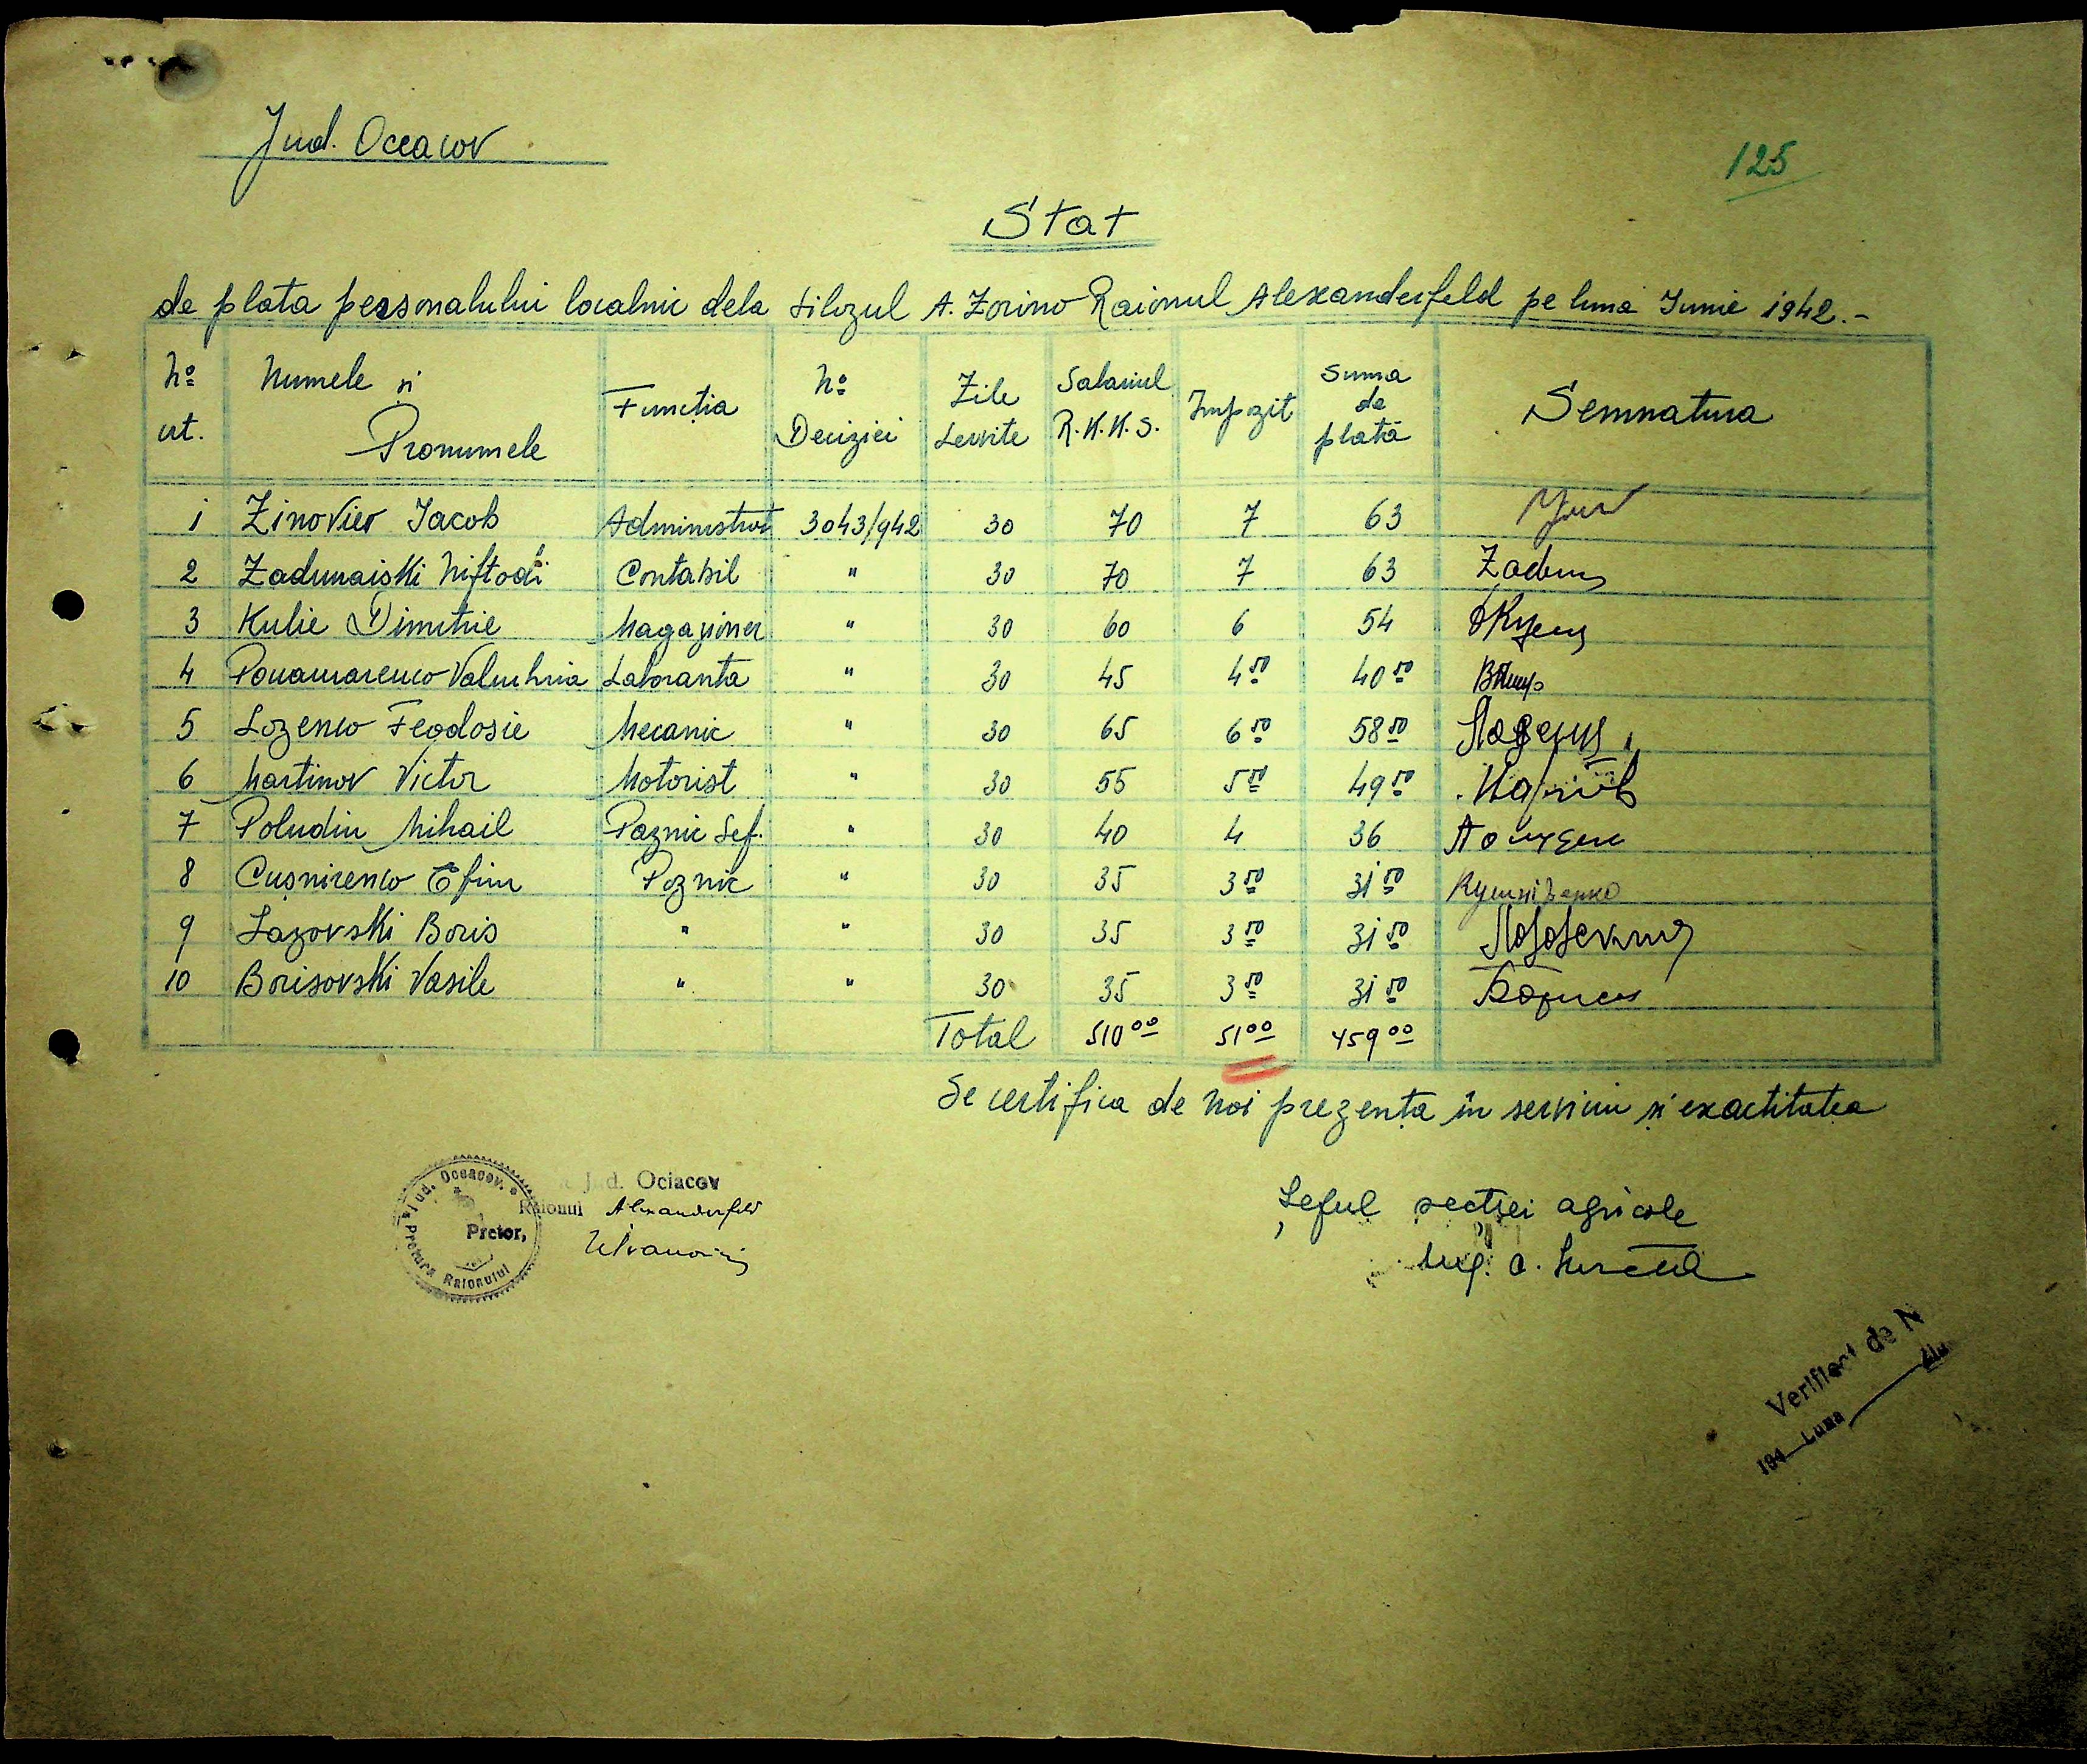 Jud. Oceacov
125
Stat
de plata personalului localnic dela silozul A. Zorino Raionul Alexanderfeld pe luna Junie 1942.-
No crt. Numele și Pronumele Funcția No Deciziei Zile Servite Salariul R.K.K.S. Impozit Suma de plată Semnatura
1 Zinoviev Jacob Administrat 3043/942 30 70 7 63
2 Zadunaiski Niftodi Contabil " 30 70 7 63 Zadun
3 Kulie Dimitrie Magaziner " 30 60 6 54
4 Ponamarenco Valentina Laboranta " 30 45 4 50 40 50
5 Lozenco Feodosie Mecanic " 30 65 6 50 58 50
6 Martinov Victor Motorist " 30 55 5 50 49 50
7 Poludin Mihail Paznic Sef. " 30 40 4 36
8 Cușnirenco Efim Paznic " 30 35 3 50 31 50 Кушніренко
9 Lazovski Boris " " 30 35 3 50 31 50
10 Borisovski Vasile " " 30 35 3 50 31 50
Total 510 00 51 00 459 00
Se certifica de Noi prezența în serviciu și exactitatea
Jud. Oceacov. Pretura Raionului
Jud. Ociacov
Raionul Alexanderfeld
Pretor,
Șeful secției agricole
Ing. C.
Verificat de N
194 Luna